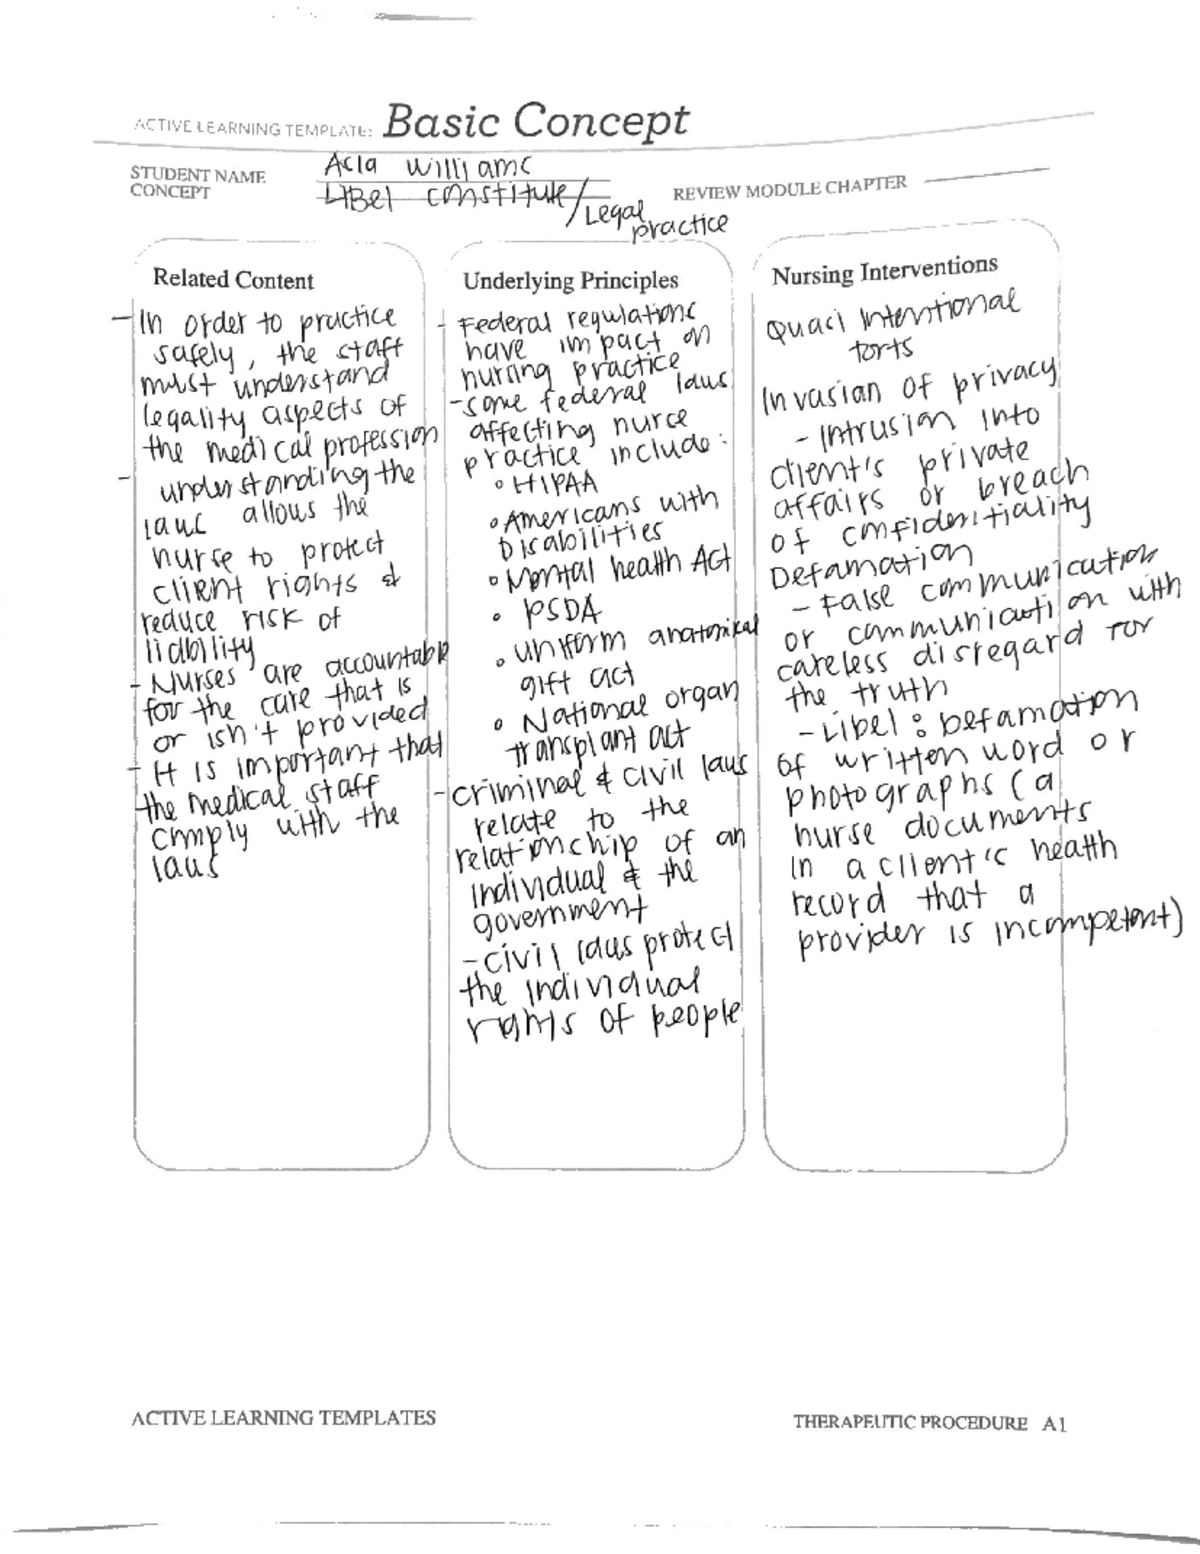 ACTIVE LEARNING TEMPLATE: Basic Concept
STUDENT NAME Acia Williams
CONCEPT Libel constitute/Legal practice
REVIEW MODULE CHAPTER
Related Content
- In order to practice
safely, the staff
must understand
legality aspects of
the medical profession
- understanding the
laws allows the
nurse to protect
client rights &
reduce risk of
liability
- Nurses are accountable
for the care that is
or isn't provided
- It is important that
the medical staff
comply with the
laws
Underlying Principles
- Federal regulations
have impact on
nursing practice
- some federal laws
affecting nurse
practice include:
° HIPAA
° Americans with
Disabilities
° Mental health Act
° PSDA
° uniform anatomical
gift act
° National organ
transplant act
- criminal & civil laws
relate to the
relationship of an
individual & the
government
- civil laws protect
the individual
rights of people
Nursing Interventions
Quasi Intentional
torts
Invasian of privacy
- Intrusion into
client's private
affairs or breach
of confidentiality
Defamation
- False communication
or communication with
careless disregard for
the truth
- Libel: Defamation
of written word or
photographs (a
nurse documents
in a client's health
record that a
provider is incompetent)
ACTIVE LEARNING TEMPLATES
THERAPEUTIC PROCEDURE A1